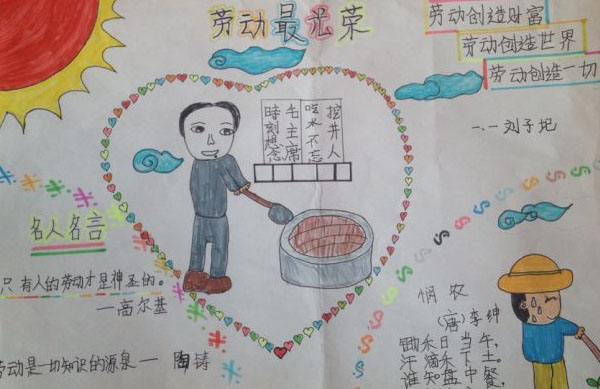 劳动最光荣
劳动创造财富
劳动创造世界
劳动创造一切
一.一刘子
吃水不忘
挖井人
時刻想念
毛主席
名人名言
只有人的劳动才是神圣的。
一高尔基
劳动是一切知识的源泉一 陶铸
悯农
(唐)李绅
锄禾日当午,
汗滴禾下土。
谁知盘中餐,